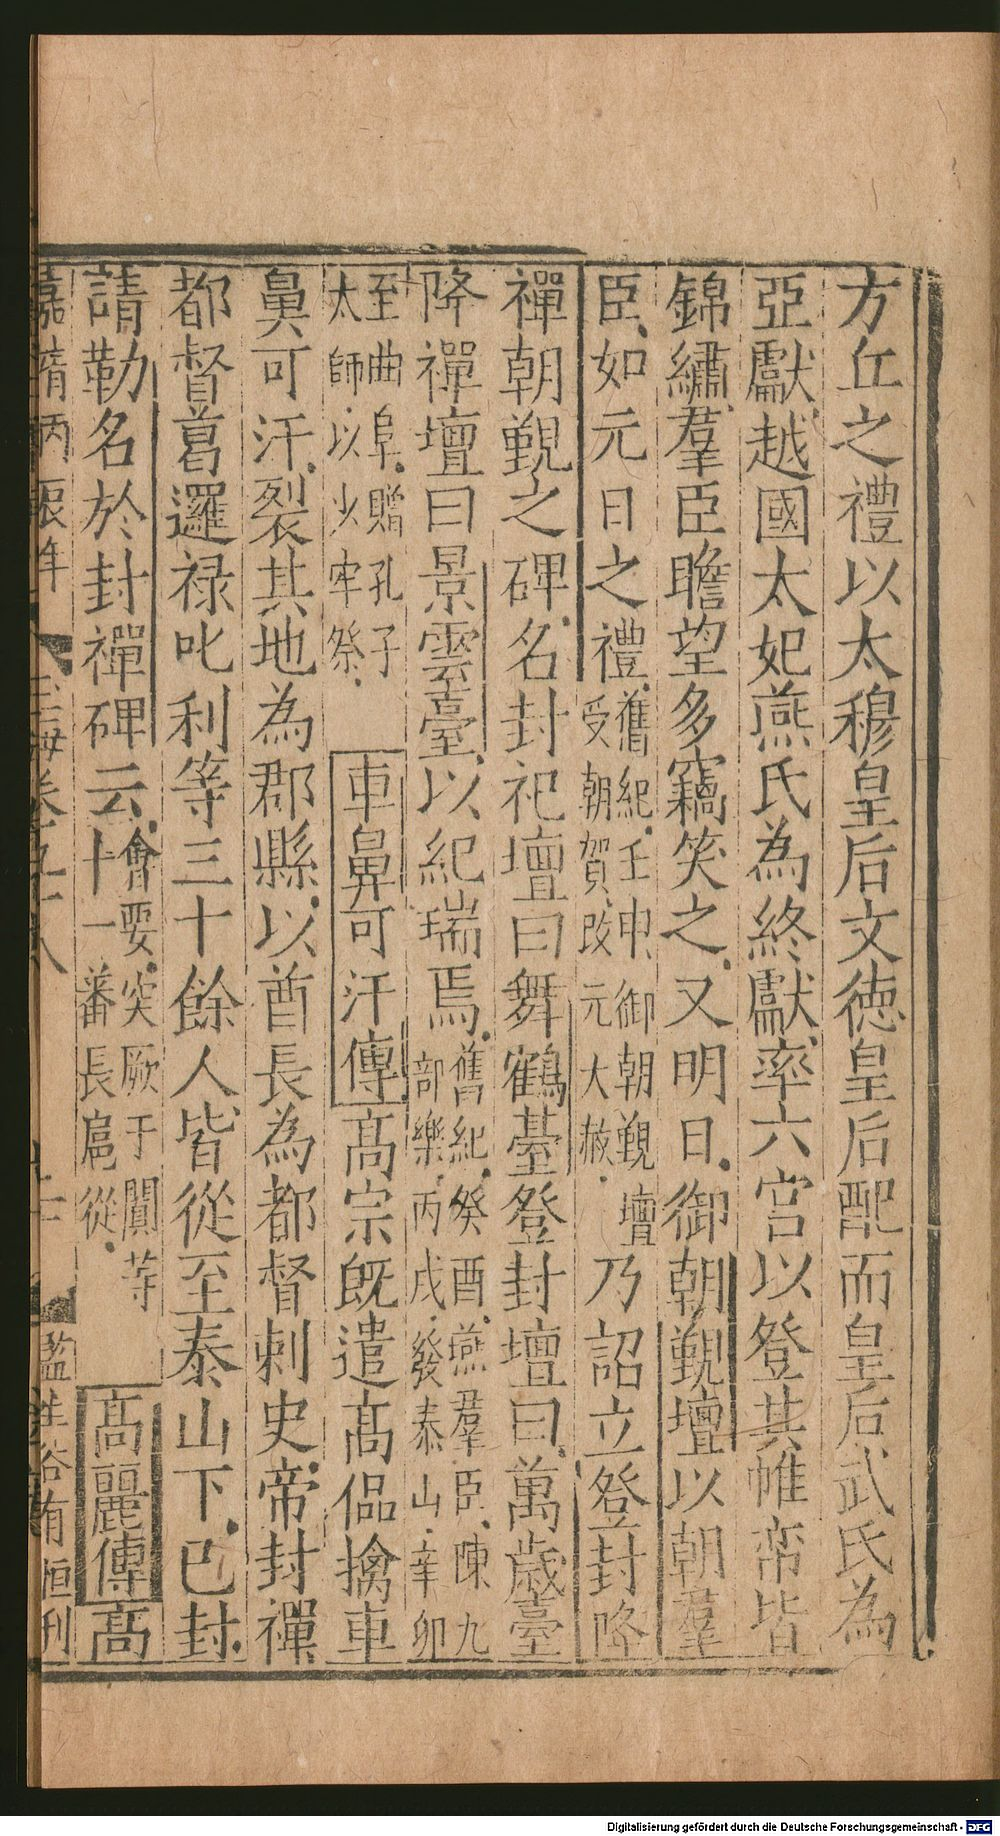 方丘之禮以太穆皇后文徳皇后配而皇后武氏為
亞獻越國太妃燕氏為終獻率六宮以登其帷帟皆
錦繡羣臣瞻望多竊笑之又明日御朝覲壇以朝羣
臣如元日之禮舊紀壬申御朝覲壇受朝賀改元大赦乃詔立登封降
禪朝覲之碑名封祀壇曰舞鶴臺登封壇曰萬歲臺
降禪壇曰景雲臺以紀瑞焉舊紀癸酉燕羣臣陳九部樂丙戌發泰山辛卯
至曲阜贈孔子太師以少牢祭車鼻可汗傳高宗旣遣高偘擒車
鼻可汗裂其地為郡縣以酋長為都督刺史帝封禪
都督葛邏禄叱利等三十餘人皆從至泰山下已封
請勒名於封禪碑云會要突厥于闐等十一蕃長扈從高麗傳高
嘉靖丙辰年 玉海卷九十八 十二 監生谷有恒刊
Digitalisierung gefördert durch die Deutsche Forschungsgemeinschaft - DFG